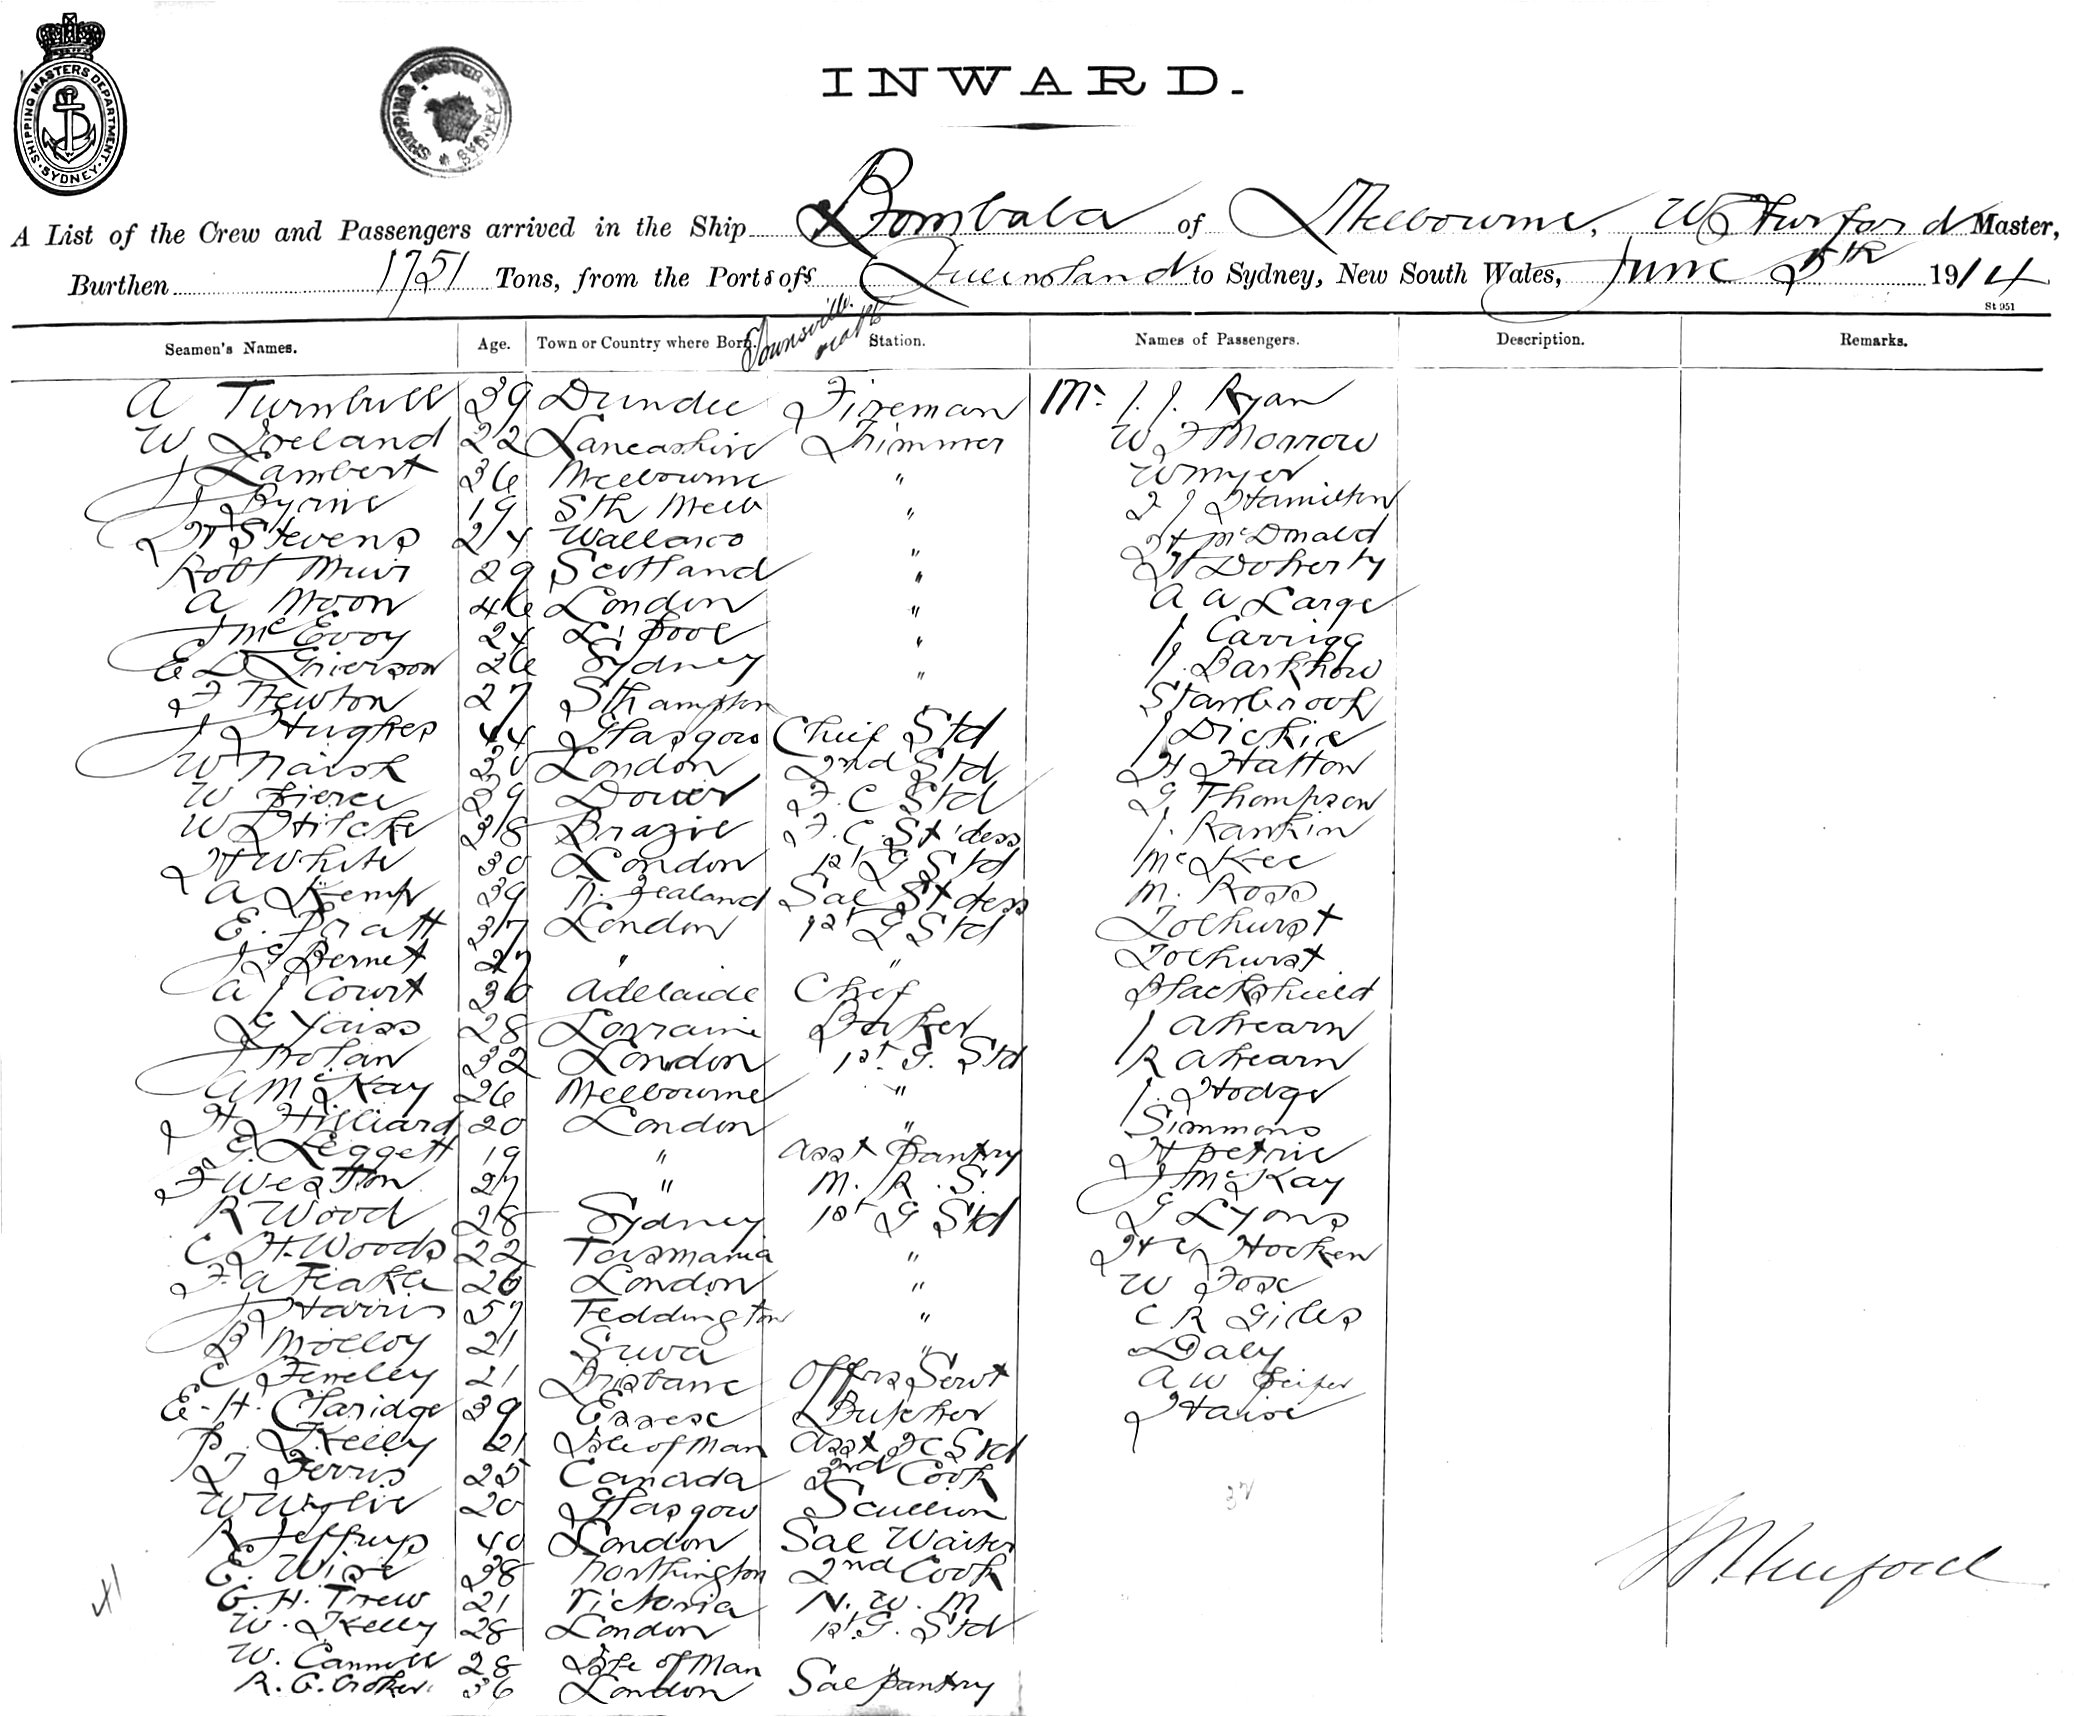 SHIPPING MASTERS DEPARTMENT. SYDNEY.
SHIPPING MASTER SYDNEY
INWARD.
A List of the Crew and Passengers arrived in the Ship Bombala of Melbourne, Master,
Burthen 1751 Tons, from the Ports of Queensland to Sydney, New South Wales, June 5th 1914
St 951
Townsville
Seamen's Names. Age. Town or Country where Born. Station. Names of Passengers. Description. Remarks.
A Turnbull 39 Dundee Fireman Mr. J. J. Ryan
W Ireland 22 Lancashire Trimmer W J Morrow
J Lambert 36 Melbourne " W Myer
J Byrne 19 Sth Melb " F J Hamilton
H Stevens 24 " H McDonald
Robt Muir 29 Scotland " H Doherty
A Moon 46 London " A A Large
J McEvoy 24 L'pool " J Carrigg
E D Grierson 26 Sydney " J.
F Newton 27 Sthampton Stanbrook
J Hughes 44 Glasgow Chief Std J Dickie
W Naish 30 London 2nd Std H Hatton
W Pierce 39 Dover F. C Std G Thompson
W Hilcke 38 Brazil F. C. St'dess J. Rankin
H White 30 London 1st G Std McKee
A Kemp 39 N. Zealand Sal St'dess M. Ross
E. Pratt 37 London 1st G Std Tolhurst
J G Bernet 27 " " Tolhurst
A J Court 36 Adelaide Chef Blackshield
G Yaiss 28 Lorraine Baker J Ahearn
J Nolan 32 London 1st. G. Std R Ahearn
A McKay 26 Melbourne " J. Hodge
H Hilliard 20 London " Simmons
G. Leggett 19 " Asst Pantry H Petrie
F Weston 27 " M. R. S. J McKay
R Wood 28 Sydney 1st G Std G Lyons
C H. Woods 22 Tasmania " H C Hocken
F. A Feaka 26 London " W Fox
J Harris 57 Teddington " C R Giles
B Molloy 21 Suva " Daly
C Feneley 21 Brisbane Offrs Servt A W Peifer
E. H. Claridge 39 Essex Butcher
P. Kelly 21 Isle of Man Asst F C Std
T Ferris 25 Canada 3rd Cook
W Wylie 20 Glasgow Scullion
R Jeffrys 40 London Sal Waiter
E. Wise 38 Northington 2nd Cook
G. H. Trew 21 Victoria N. W. M
W. Kelly 28 London 1st. G. Std
W. Cannell 28 Isle of Man "
R. G. Croker 36 London Sal Pantry
41
32